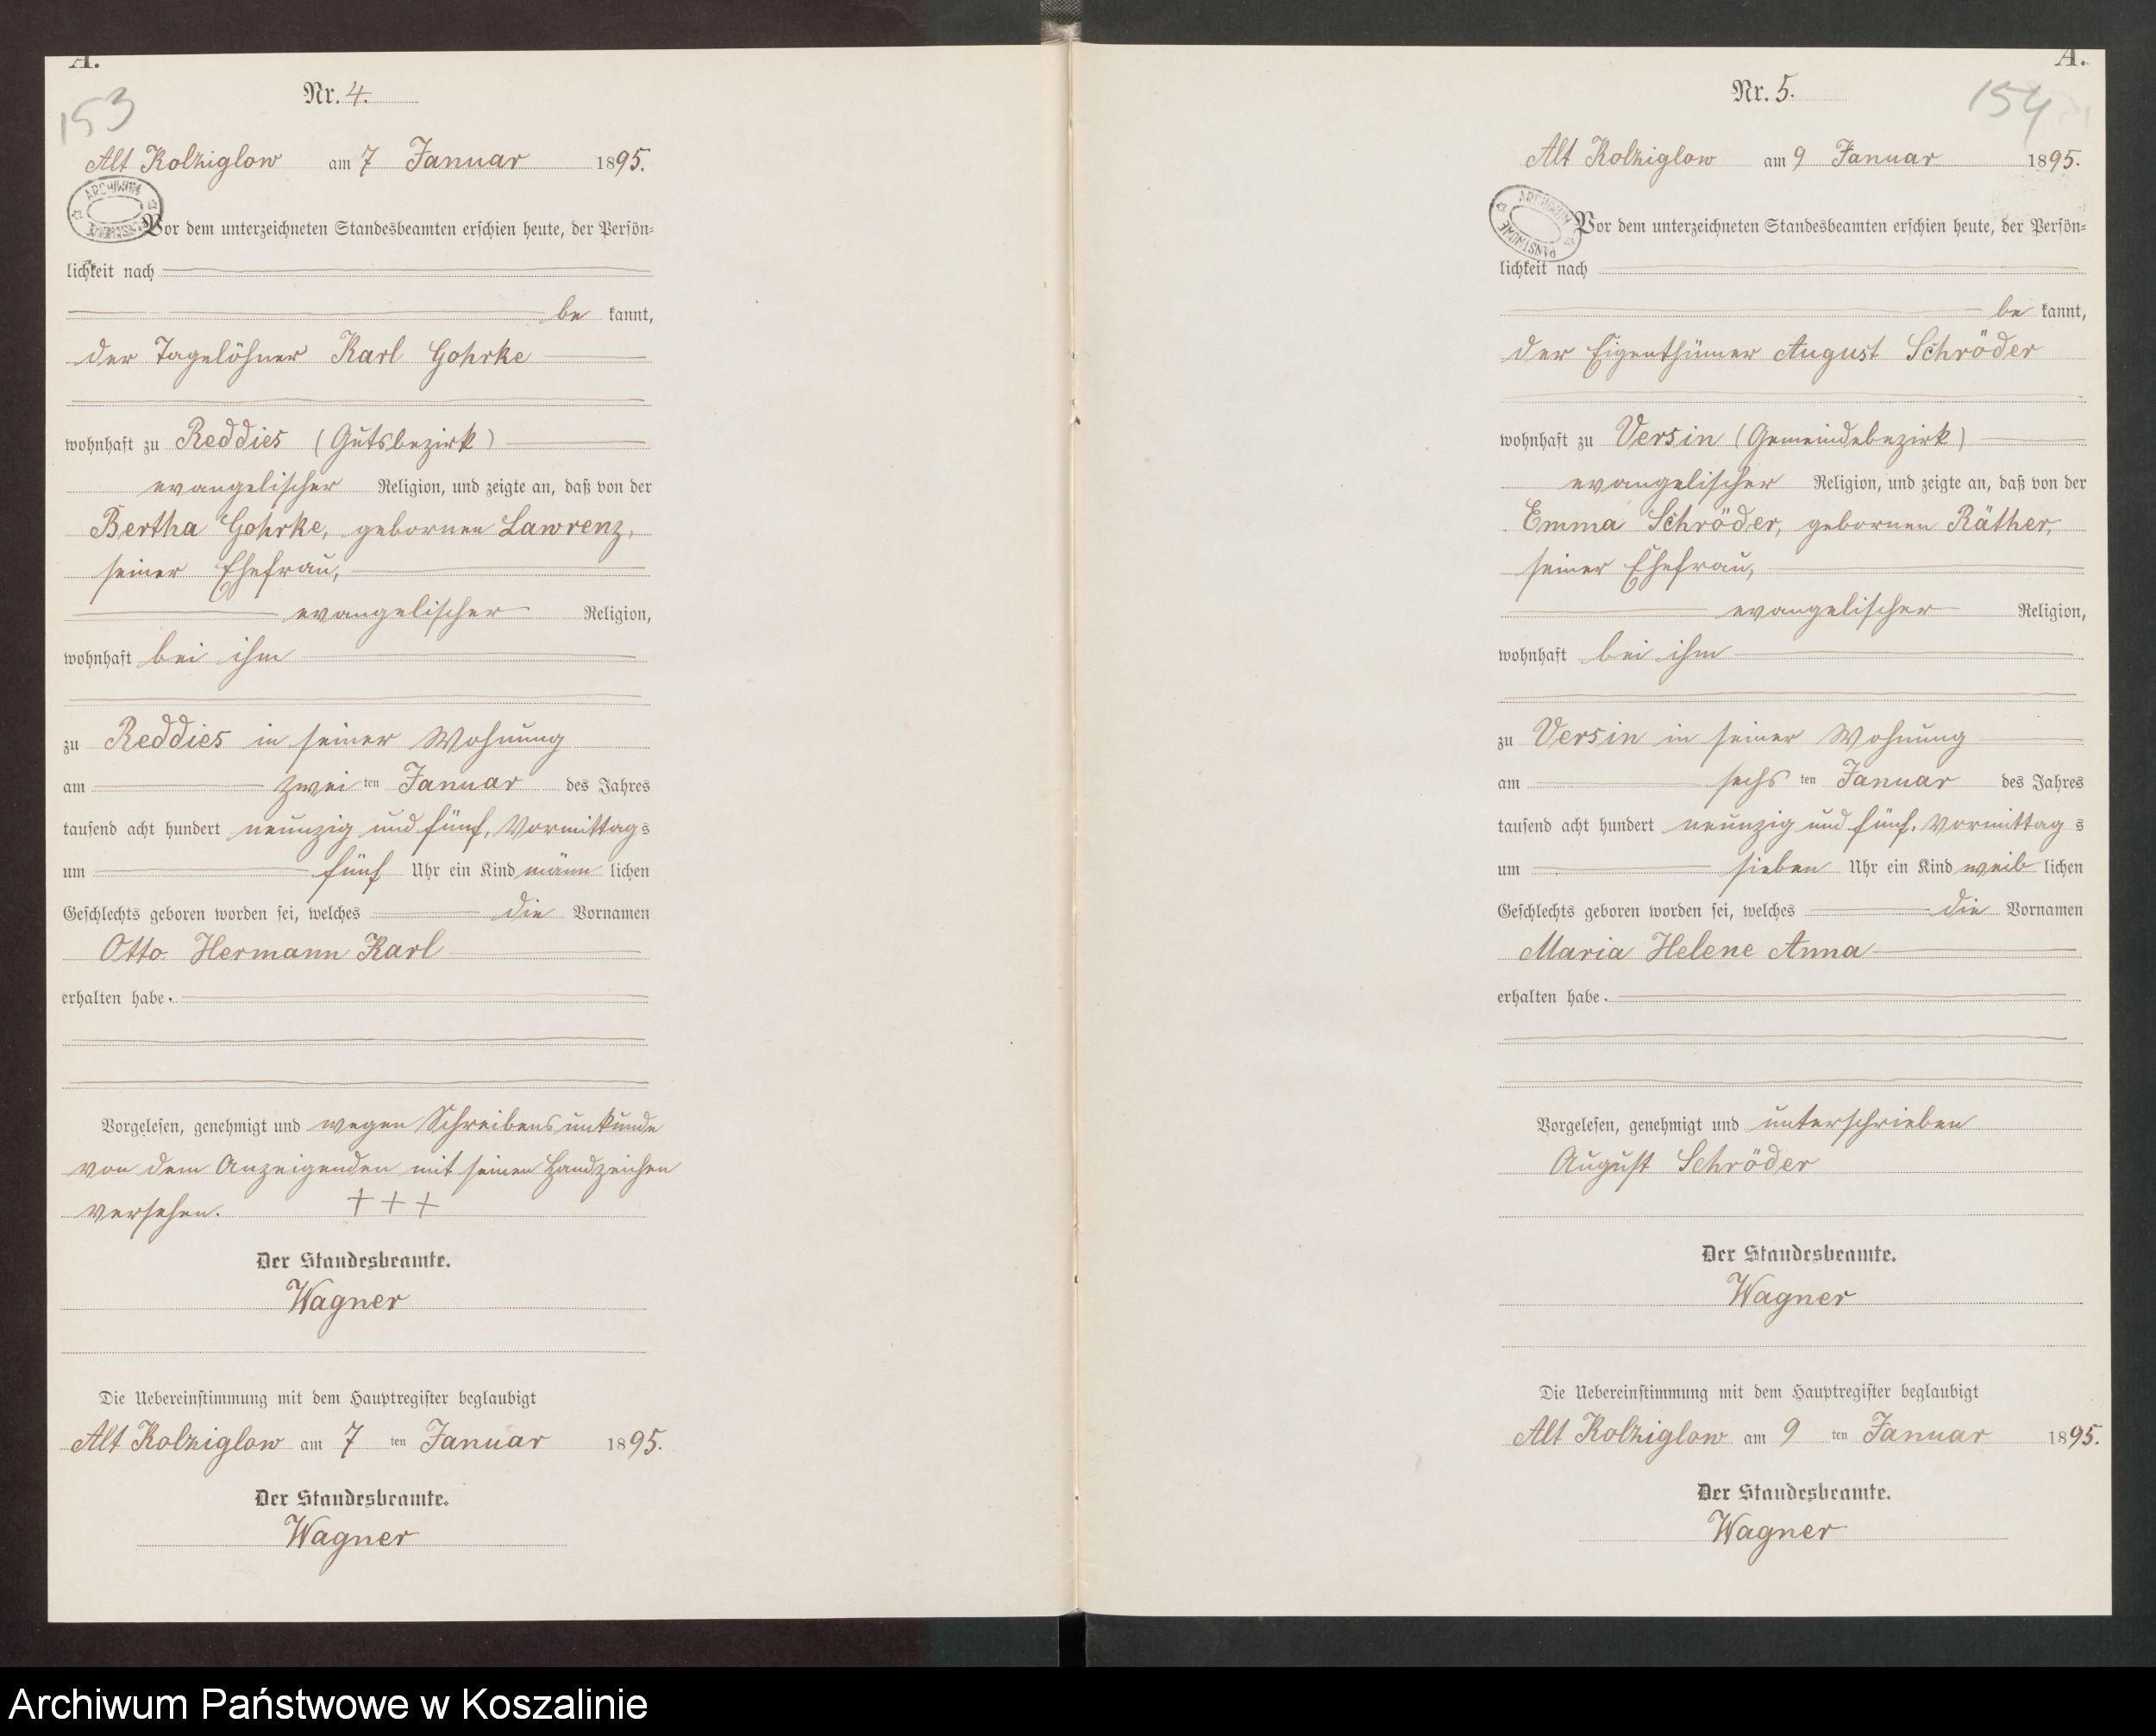 A.
153
Nr. 4.
Alt Kolziglow am 7 Januar 1895.
ARCHIWUM
Vor dem unterzeichneten Standesbeamten erschien heute, der Persön=
lichkeit nach
be kannt,
der Tagelöhner Karl Gohrke
wohnhaft zu Reddies (Gutsbezirk)
evangelischer Religion, und zeigte an, daß von der
Bertha Gohrke, gebornen Lawrenz,
seiner Ehefrau,
evangelischer Religion,
wohnhaft bei ihm
zu Reddies in seiner Wohnung
am zwei ten Januar des Jahres
tausend acht hundert neunzig und fünf, Vormittag s
um fünf Uhr ein Kind männ lichen
Geschlechts geboren worden sei, welches die Vornamen
Otto Hermann Karl
erhalten habe.
Vorgelesen, genehmigt und wegen Schreibensunkunde
von dem Anzeigenden mit seinen Handzeichen
versehen. + + +
Der Standesbeamte.
Wagner
Die Uebereinstimmung mit dem Hauptregister beglaubigt
Alt Kolziglow am 7 ten Januar 1895.
Der Standesbeamte.
Wagner
A.
154
Nr. 5.
Alt Kolziglow am 9 Januar 1895.
ARCHIWUM PAŃSTWOWE
Vor dem unterzeichneten Standesbeamten erschien heute, der Persön=
lichkeit nach
be kannt,
der Eigenthümer August Schröder
wohnhaft zu Versin (Gemeindebezirk)
evangelischer Religion, und zeigte an, daß von der
Emma Schröder, gebornen Räther,
seiner Ehefrau,
evangelischer Religion,
wohnhaft bei ihm
zu Versin in seiner Wohnung
am sechs ten Januar des Jahres
tausend acht hundert neunzig und fünf, Vormittag s
um sieben Uhr ein Kind weib lichen
Geschlechts geboren worden sei, welches die Vornamen
Maria Helene Anna
erhalten habe.
Vorgelesen, genehmigt und unterschrieben
August Schröder
Der Standesbeamte.
Wagner
Die Uebereinstimmung mit dem Hauptregister beglaubigt
Alt Kolziglow am 9 ten Januar 1895.
Der Standesbeamte.
Wagner
Archiwum Państwowe w Koszalinie